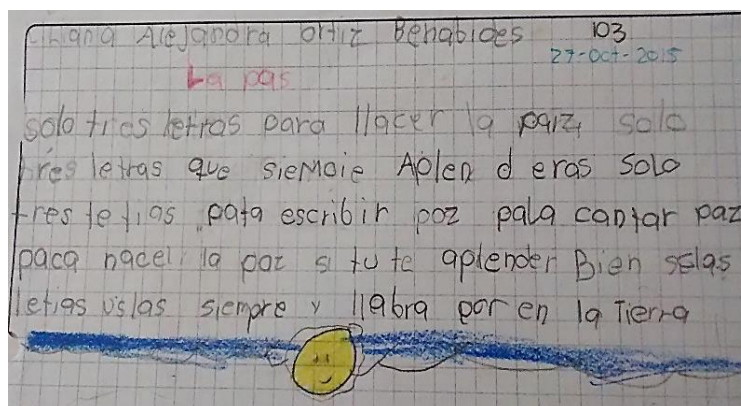 Lihana Alejandra ortiz Benabides 103
27-oct-2015
La pas
solo tres letras para llacer la parz, solo
tres letras que siemoie Aplen d eras solo
tres tetias pata escribir poz pala cantar paz
paca nacel la paz si tu te aplender Bien selas
letias uslas siempre y llabra por en la Tierra